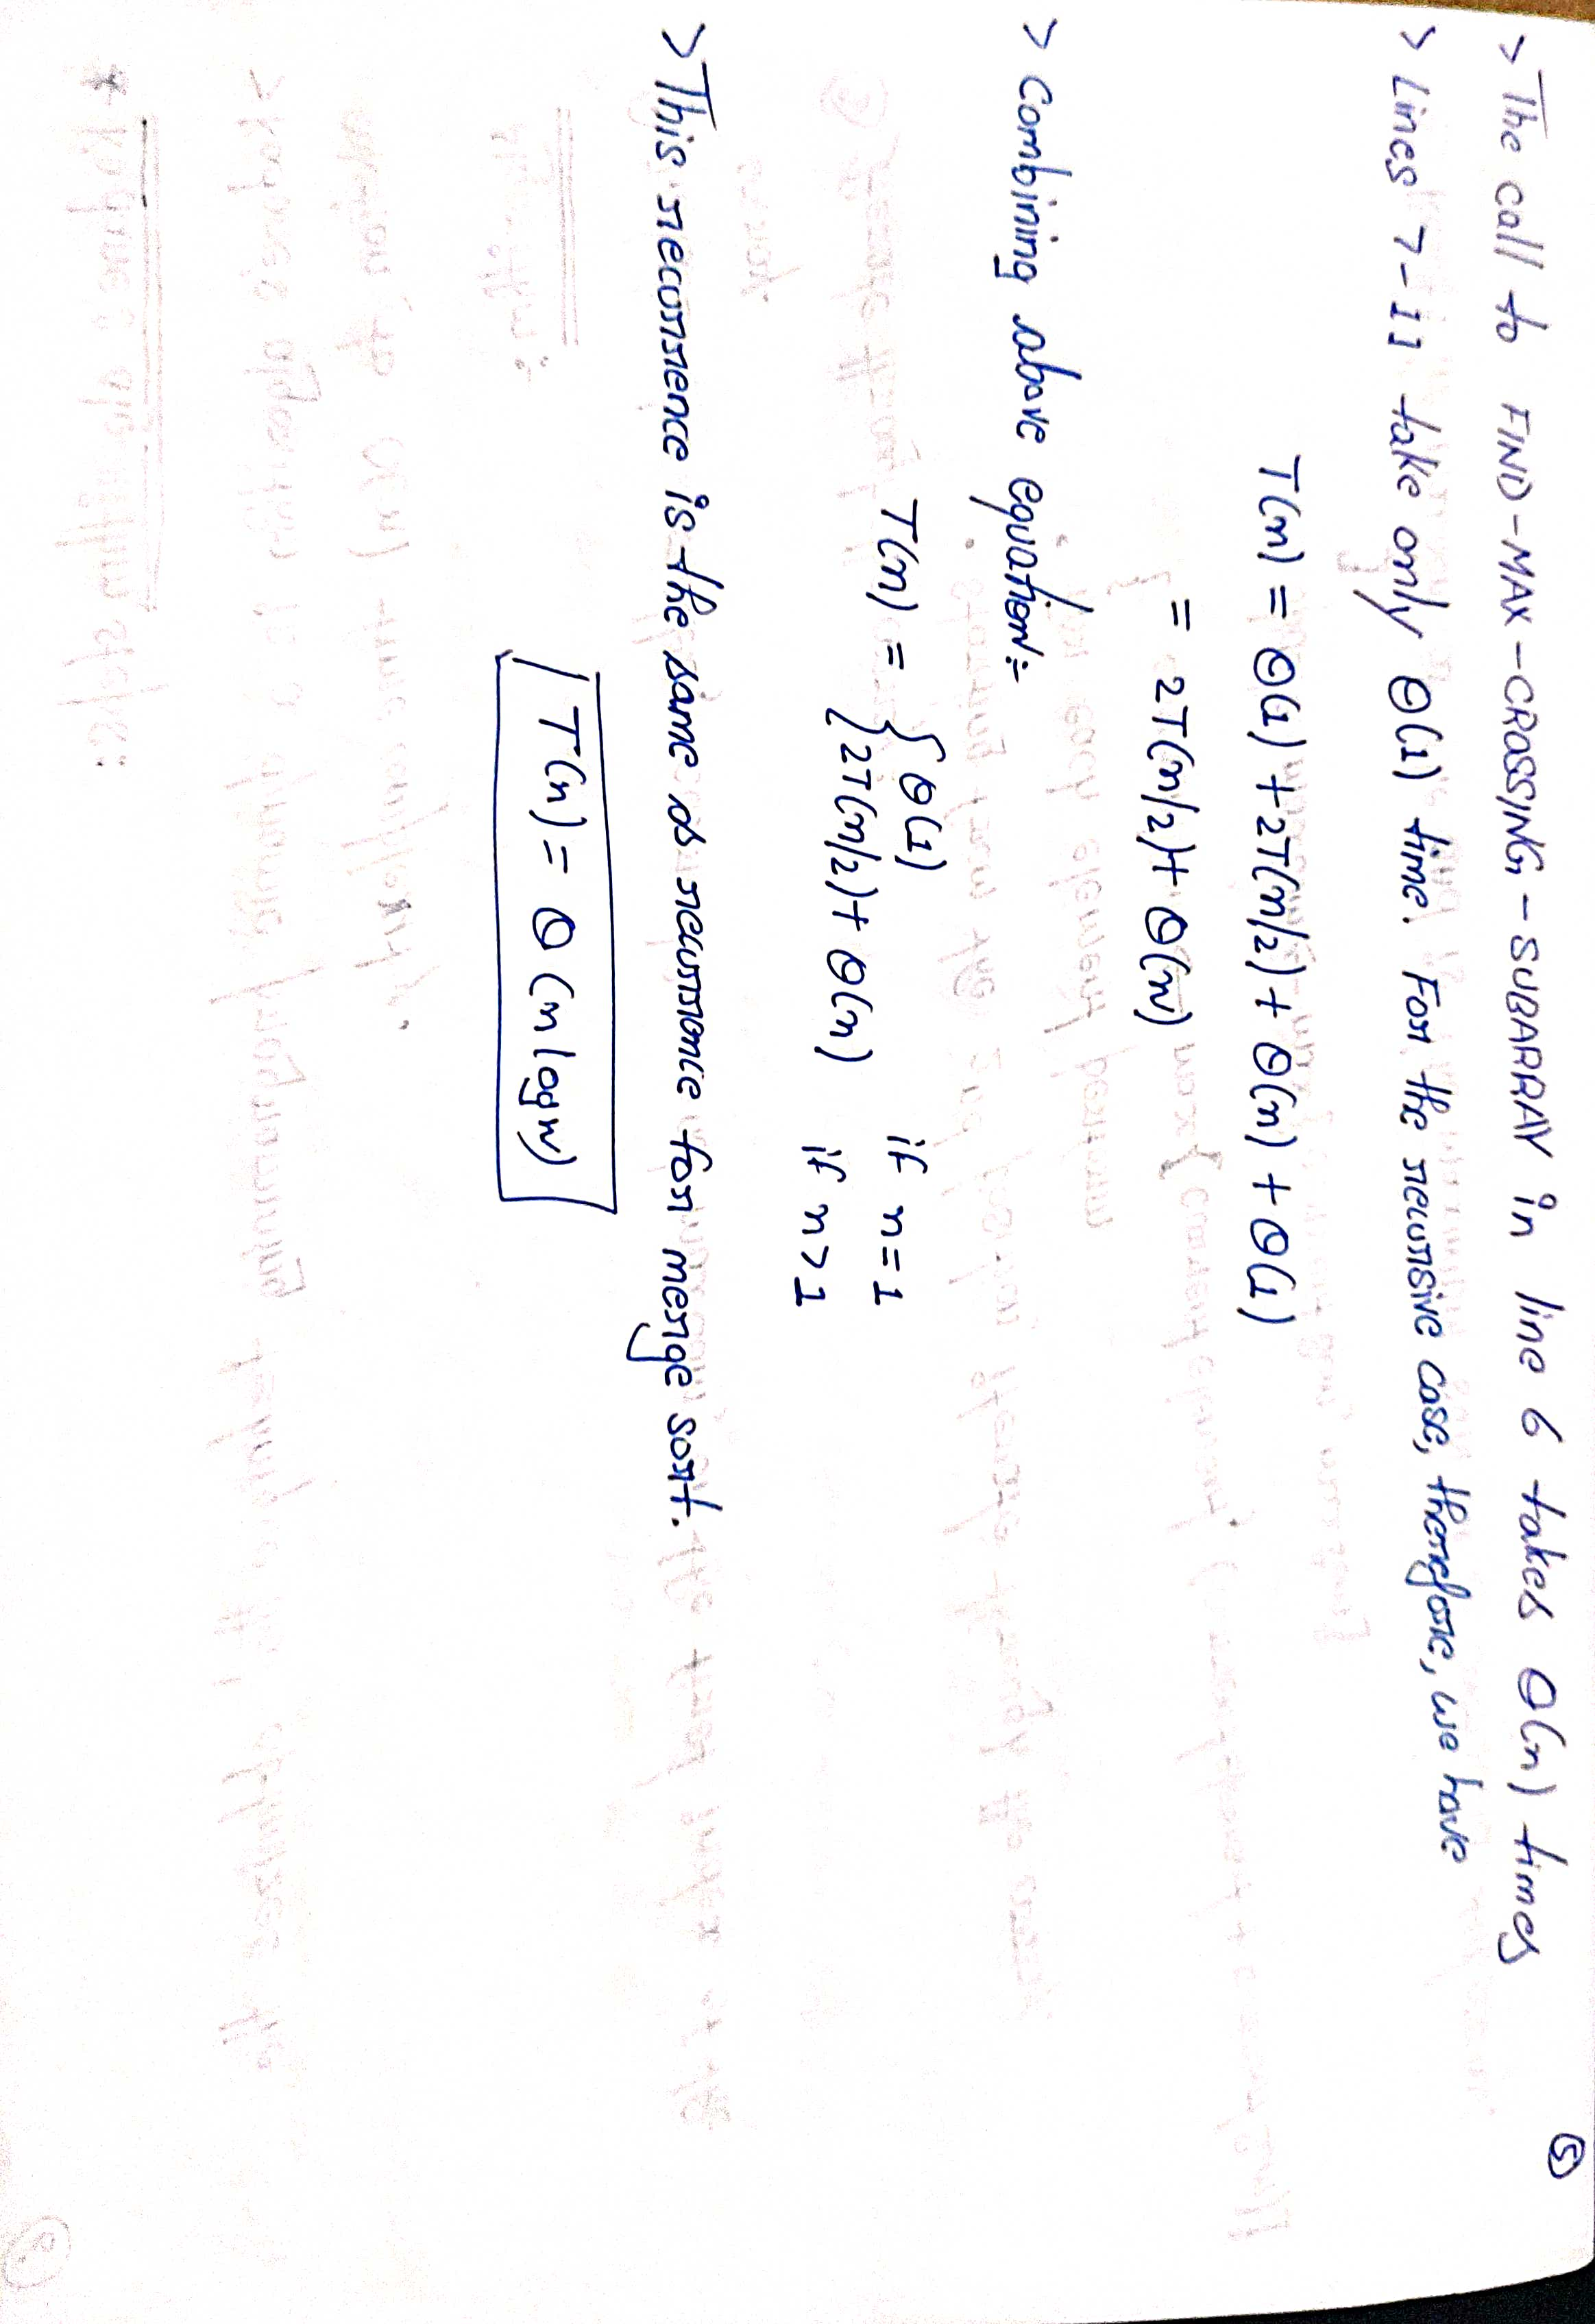 5
> The call to FIND-MAX-CROSSING-SUBARRAY in line 6 takes θ(n) times
> Lines 7-11 take only θ(1) time. For the recursive case, therefore, we have
T(n) = θ(1) + 2T(n/2) + θ(n) + θ(1)
= 2T(n/2) + θ(n)
> Combining above equation:-
T(n) = { θ(1) if n=1
2T(n/2) + θ(n) if n>1
> This recurrence is the same as recurrence for merge sort.
T(n) = θ(n log n)